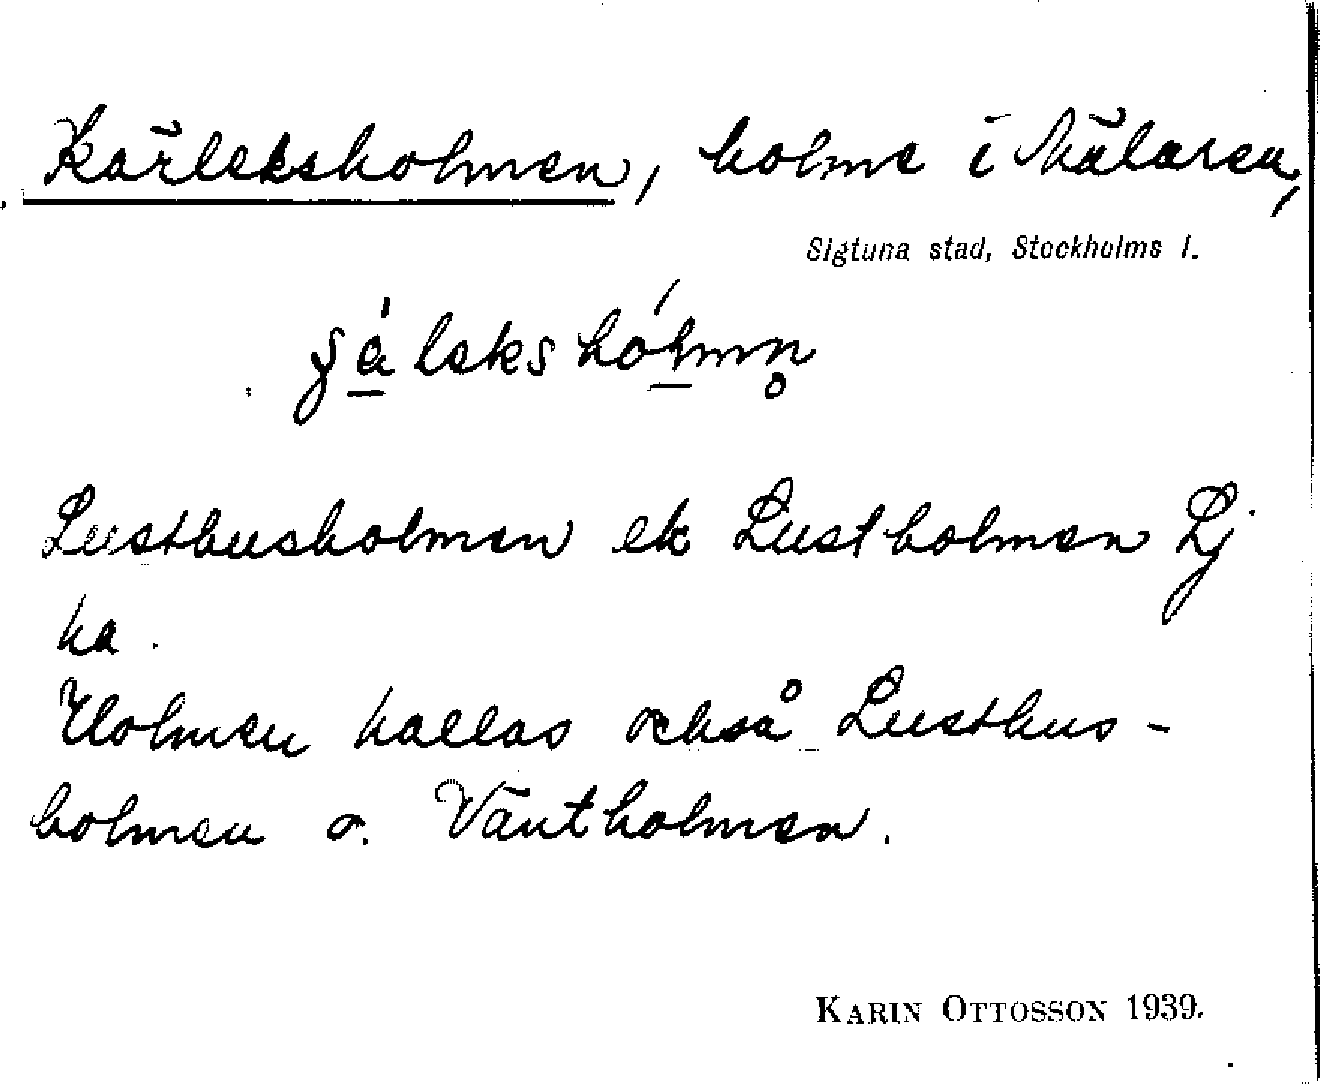 Kärleksholmen, holme i Mälaren,
Sigtuna stad, Stockholms l.
Lusthusholmen ek Lustholmen Lj
ka.
Holmen kallas också Lusthus-
holmen o. Väntholmen.
KARIN OTTOSSON 1939.